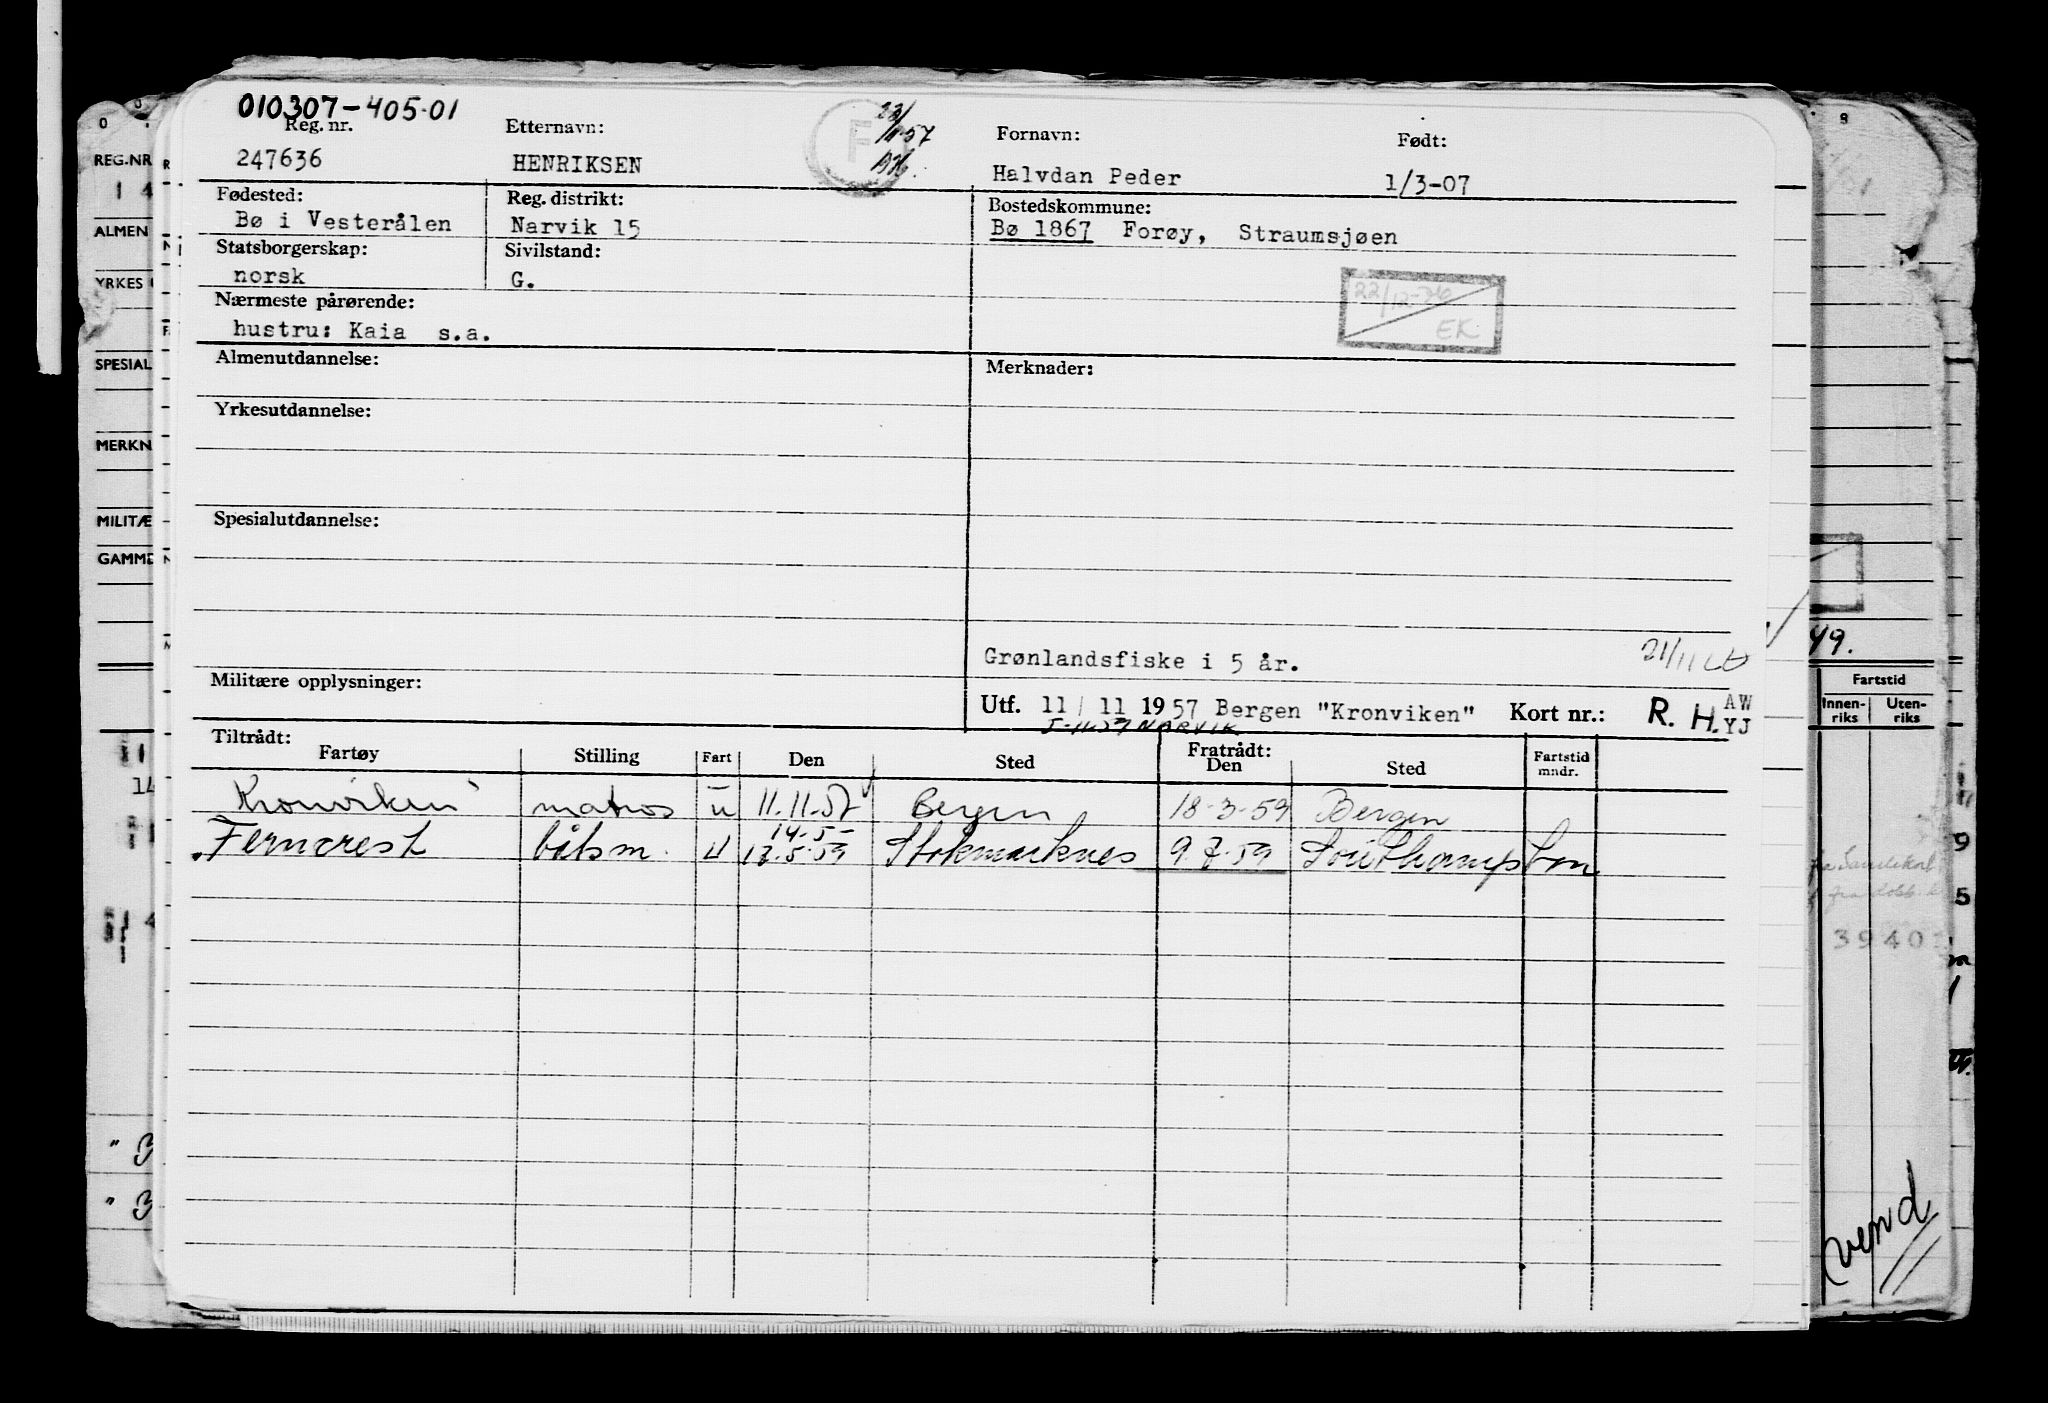 010307-405.01
Reg. nr. Etternavn: Fornavn: Født:
247636 HENRIKSEN F Halvdan Peder 1/3-07
Fødested: Reg. distrikt: Bostedskommune:
Bø i Vesterålen Narvik 15 Bø 1867 Forøy, Straumsjøen
Statsborgerskap: Sivilstand:
norsk G.
22/12-76
EK
Nærmeste pårørende:
hustru: Kaia s.a.
Almenutdannelse: Merknader:
Yrkesutdannelse:
Spesialutdannelse:
Grønlandsfiske i 5 år. 21/11
Militære opplysninger:
Utf. 11/ 11 1957 Bergen "Kronviken" Kort nr.: R. H. AW
YJ
5-11-57 NARVIK
Tiltrådt: Fratrådt:
Fartøy Stilling Fart Den Sted Den Sted Fartstid mndr.
Kronviken matros u 11.11.57 Bergen 18-3-59 Bergen
14-5-
Ferncrest båtsm. U 17.5.59 Stokmarknes 9.7.59 Southampton
REG.NR
14
ALMEN
YRKES
SPESIAL
MERKN
MILITÆ
GAMME
49.
Fartstid
Innen-riks Uten-riks
39401
vend